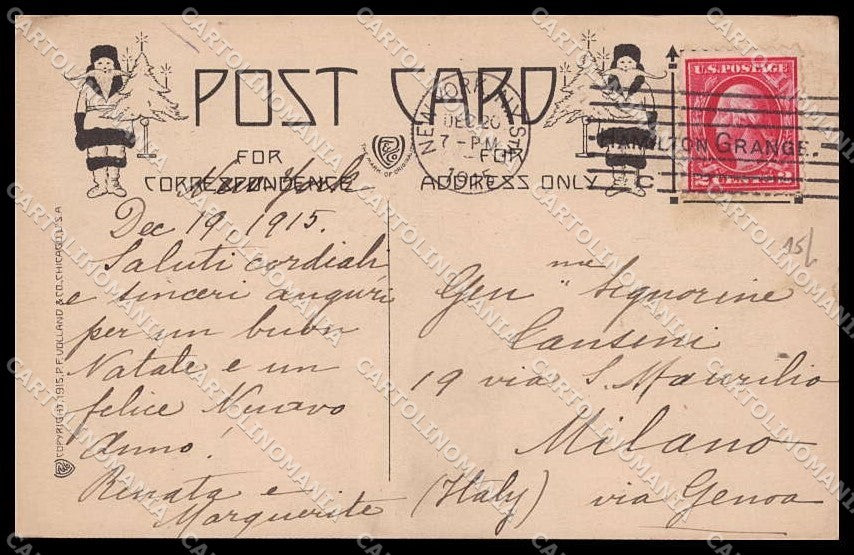 POST CARD
FOR
CORRESPONDENCE
FOR
ADDRESS ONLY
U.S. POSTAGE
NEW YORK, N.Y. STA.
DEC 20
7 - PM
1915
HAMILTON GRANGE.
C
THE MARK OF ORIGINALITY
COPYRIGHT, 1915, P.F. VOLLAND & CO. CHICAGO, U.S.A.
15/
New York
Dec 19 1915.
Saluti cordiali
e sinceri auguri
per un buon
Natale e un
felice Nuovo
Anno!
Renata e
Marguerite
Gen.me Signorine
Cansini
19 via S. Maurilio
Milano
(Italy) via Genoa
CARTOLINOMANIA